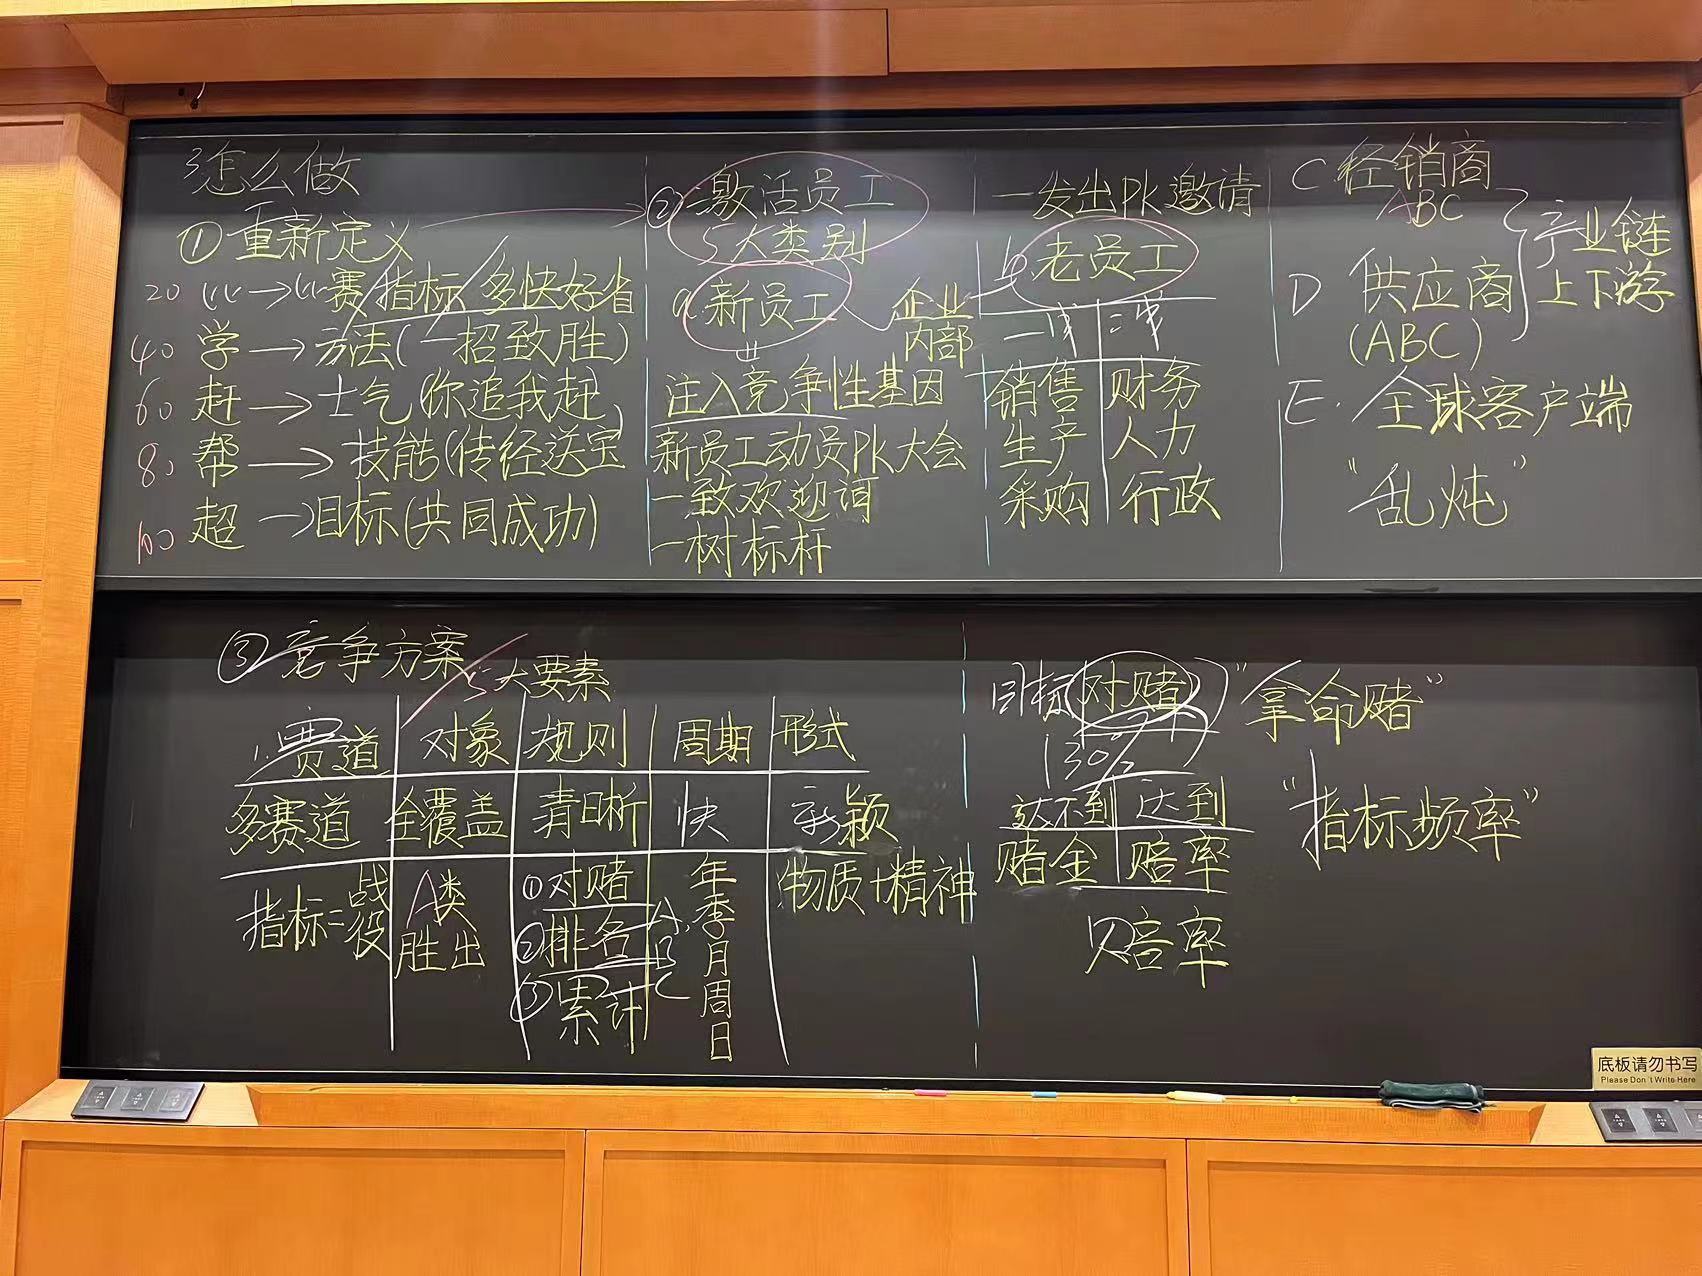 3怎么做
①重新定义
20 比→比赛/指标/多快好省
40 学→方法(一招致胜)
60 赶→士气(你追我赶)
80 帮→技能(传经送宝
100 超→目标(共同成功)
②激活员工
5大类别
a.新员工
企业
内部
注入竞争性基因
新员工动员PK大会
一致欢迎词
一树标杆
一发出PK邀请
b.老员工
一线 二线
销售 财务
生产 人力
采购 行政
C 经销商
ABC
D 供应商
(ABC)
产业链
上下游
E. 全球客户端
"乱炖"
③竞争方案
5大要素
1.赛道 对象 规则 周期 形式
多赛道 全覆盖 清晰 快 新颖
指标=战役 A类胜出 ①对赌 ②排名 ③累计 年季月周日 物质+精神
A
B
C
目标(对赌) "拿命赌"
130%
达不到 达到
赌金 赔率
赔率
"指标频率"
底板请勿书写
Please Don't Write Here